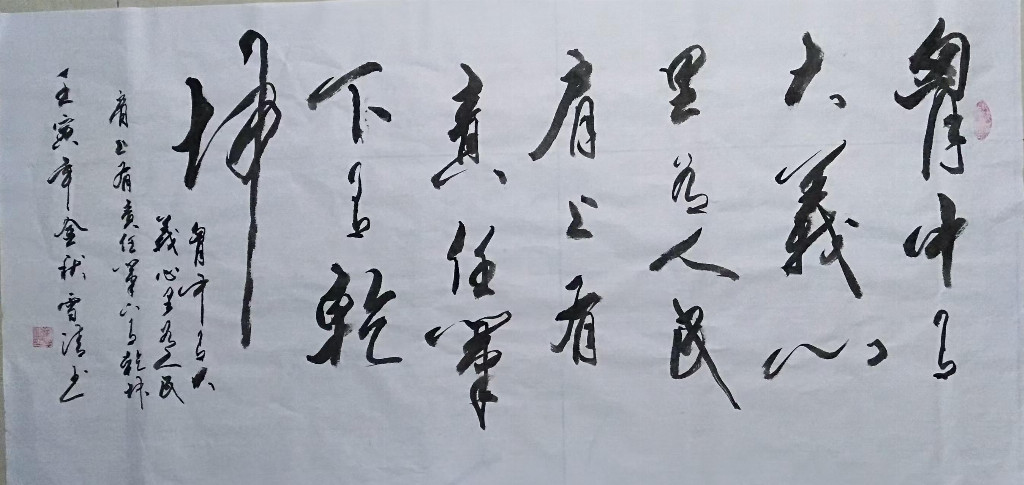 胷中有
大義心
里有人民
肩上有
責任筆
下有乾
坤
胷中有大
義心里有人民
肩上有責任筆下有乾坤
壬寅年金秋雪清书